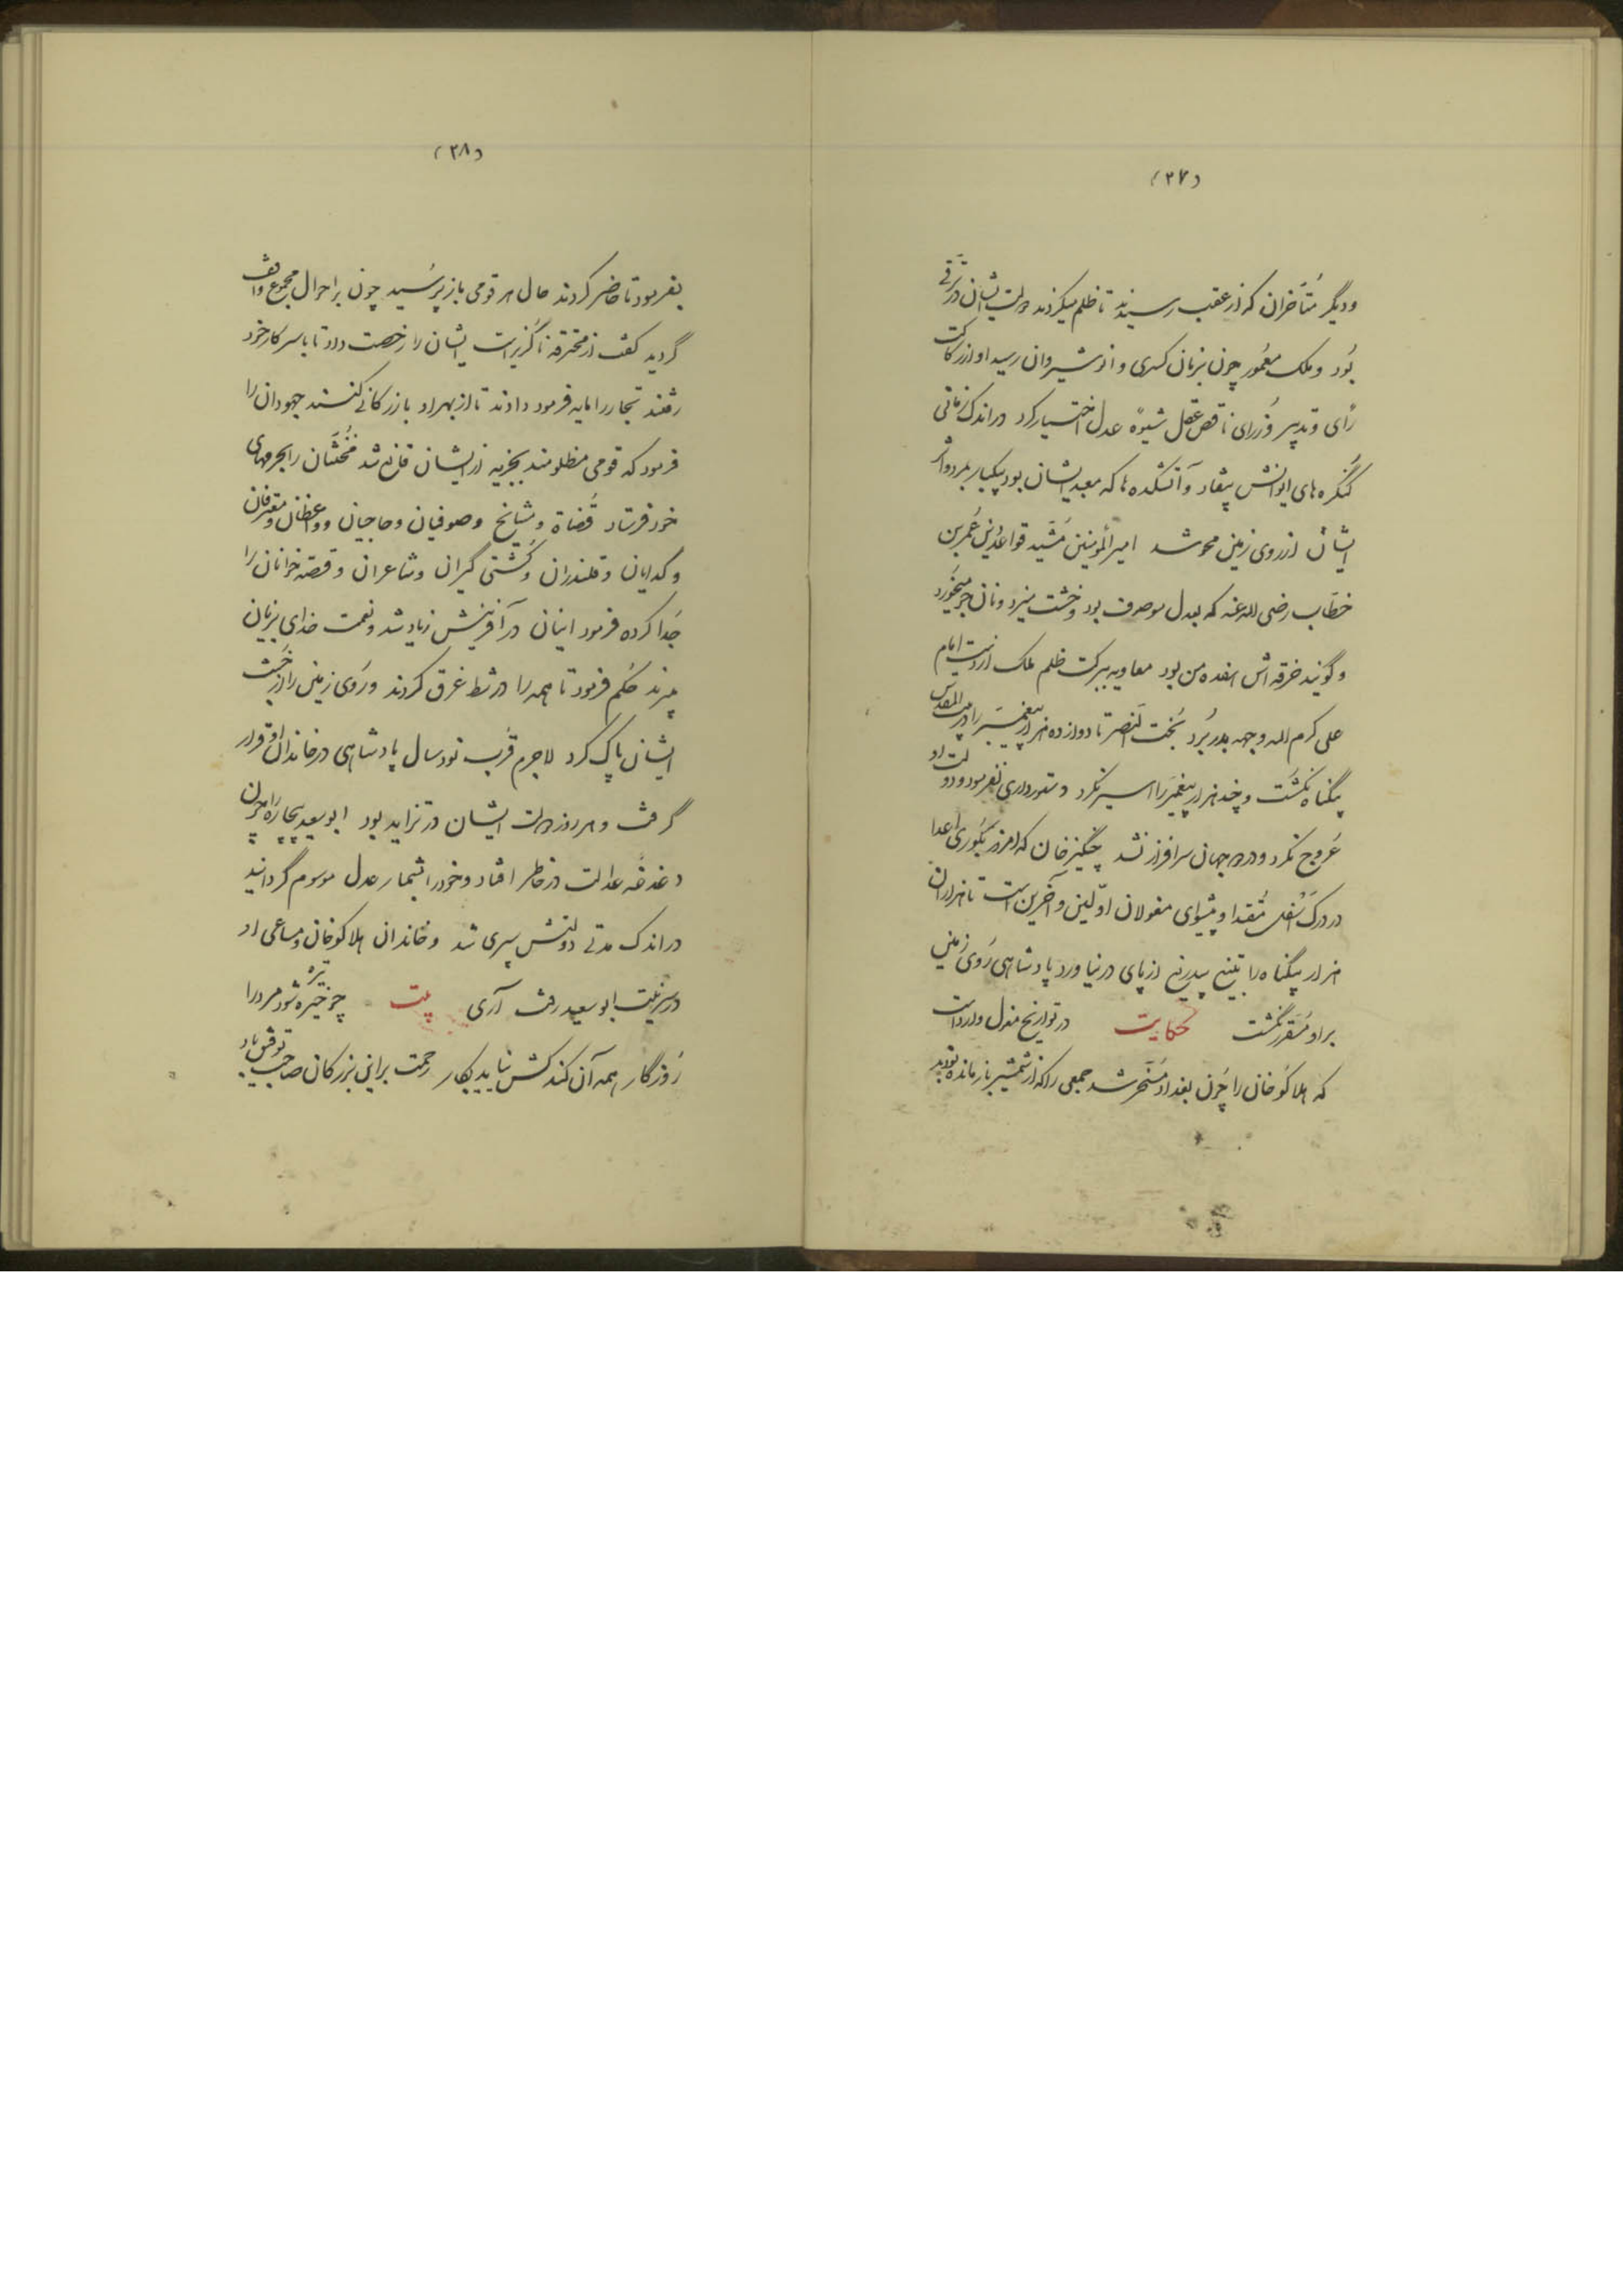 (۲۷)
و دیگر متأخران که از عقب رسیدند تا ظلم میکردند دولت ایشان در ترقی
بود و ملک معمور چون بزمان کسری و انوشیروان رسید او از رکاکت
رأی و تدبیر وُزرای ناقص عقل شیوهٔ عدل اختیار کرد در اندک زمانی
کنگره‌های ایوانش بیفتاد و آتشکده‌ها که معبد ایشان بود بیکبار بمرد و اثر
ایشان از روی زمین محو شد امیرالمؤمنین مُشَیّد قواعد دین عُمَر بن
خطّاب رضی الله عنه که بعدل موصوف بود و خشت میزد و نان جو میخورد
و گویند خرقه‌اش هفده من بود معاویه ببرکت ظلم ملک از دست امام
علی کرم الله وجهه بدر بُرد بُخت النصر تا دوازده هزار پیغمبر را در بیت المقدس
بیگناه نکشت و چند هزار پیغمبر را اسیر نکرد و ستورداری نفرمود دولت او
عُروج نکرد و در دو جهان سرافراز نشد چنگیز خان که امروز بکوری اعدا
در درک اسفل مُقتدا و پیشوای مغولان اوّلین و آخرین است تا هزاران
هزار بیگناه را بتیغ بیدریغ از پای در نیاورد پادشاهی رُوی زمین
بر او مُقرّر نگشت حکایت در تواریخ مغول وارد است
که هلاکو خان را چون بغداد مُسَخّر شد جمعی را که از شمشیر باز مانده بودند
(۲۸)
بفرمود تا حاضر کردند حال هر قومی باز پرسید چون بر احوال مجموع واقف
گردید گفت از محترفه ناگزیر است ایشان را رخصت داد تا با سر کار خود
رفتند تجار را مایه فرمود دادند تا از بهر او بازرگانی کنند جهودان را
فرمود که قومی مظلومند بجزیه از ایشان قانع شد مُخنّثان را بحرمهای
خود فرستاد قُضاة و مشایخ و صوفیان و حاجیان و واعظان و معرفان
و گدایان و قلندران و کُشتی گیران و شاعران و قصّه خوانان را
جُدا کرده فرمود اینان در آفرینش زیادند و نعمت خدای بزیان
میبرند حُکم فرمود تا همه را در شط غرق کردند و رُوی زمین را از خبث
ایشان پاک کرد لاجرم قُرب نود سال پادشاهی در خاندان او قرار
گرفت و هر روز دولت ایشان در تزاید بود ابو سعید بیچاره را چون
دغدغه عدالت در خاطر افتاد و خود را بشعار عدل موسوم گردانید
در اندک مدتی دولتش سپری شد و خاندان هلاکو خان و مساعی او
در سر نیّت ابو سعید رفت آری بیت چو خیره شود مرد را
رُوزگار همه آن کند کش نیاید بکار رحمت بر این بزرگان صاحب توفیق باد